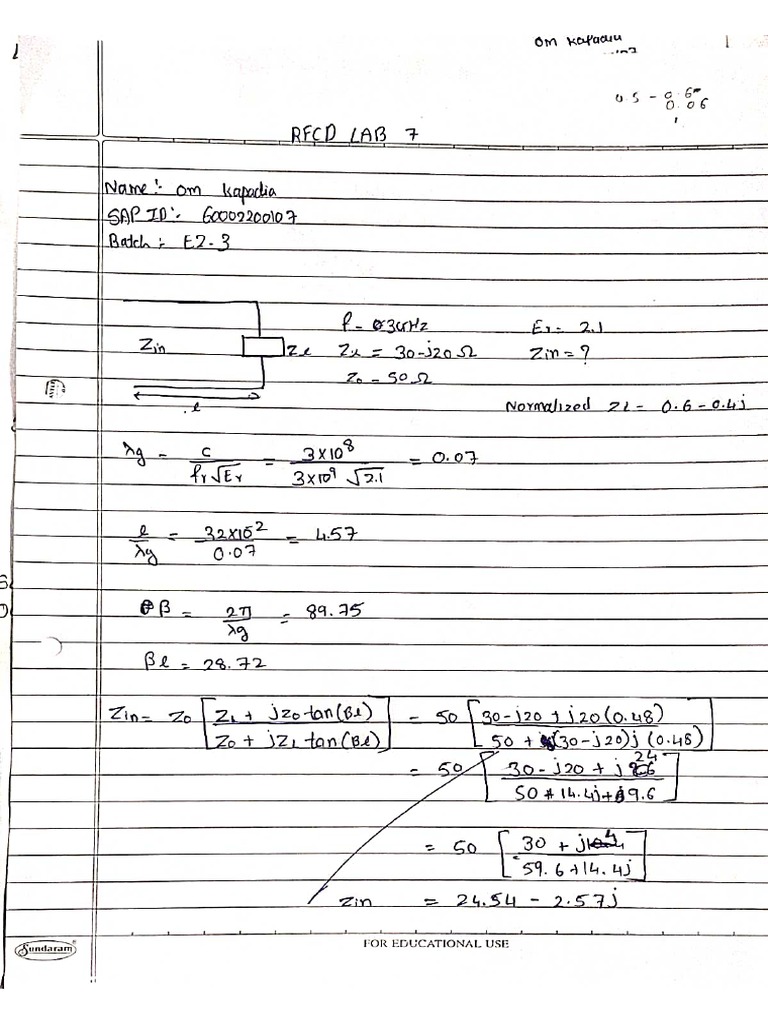 Om Kapadia
0.5 - 0.6
0.06
RFCD LAB 7
Name :- Om Kapadia
SAP ID :- 60002200107
Batch :- E2-3
Zin
Zl
l
f = 3GHz
Er = 2.1
Zl = 30-j20 Ω
Zin = ?
Zo = 50 Ω
Normalized Zl = 0.6 - 0.4j
λg = c / fr√Er = 3×10^8 / 3×10^9 √2.1 = 0.07
l/λg = 32×10^-2 / 0.07 = 4.57
β = 2π / λg = 89.75
βl = 28.72
Zin = Zo [Zl + jZo tan(βl) / Zo + jZl tan(βl)] = 50 [30-j20 + j20(0.48) / 50 + (30-j20)j(0.48)]
= 50 [30-j20 + j24 / 50 + 14.4j + 9.6]
= 50 [30 + j4 / 59.6 + 14.4j]
Zin = 24.54 - 2.57j
Sundaram
FOR EDUCATIONAL USE